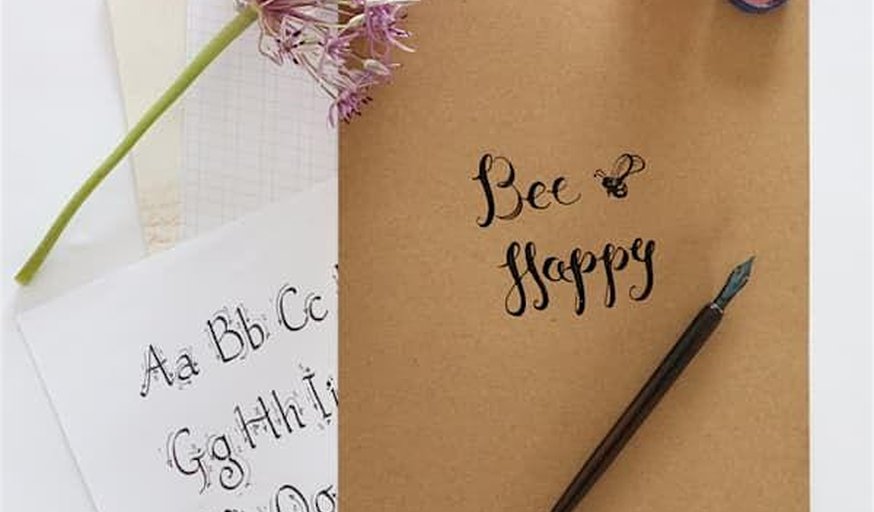 Bee
Happy
Aa Bb Cc
Gg Hh Ii
Oo